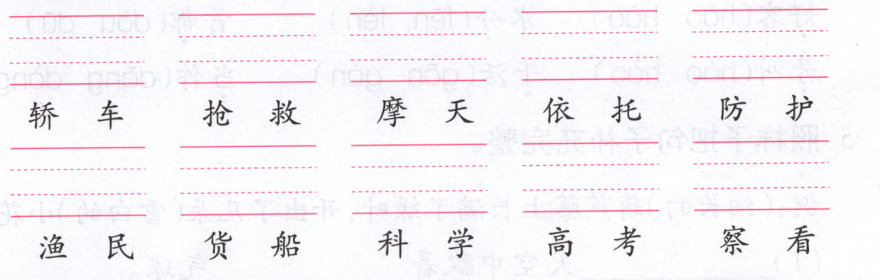 轿车 抢救 摩天 依托 防护
渔民 货船 科学 高考 察看